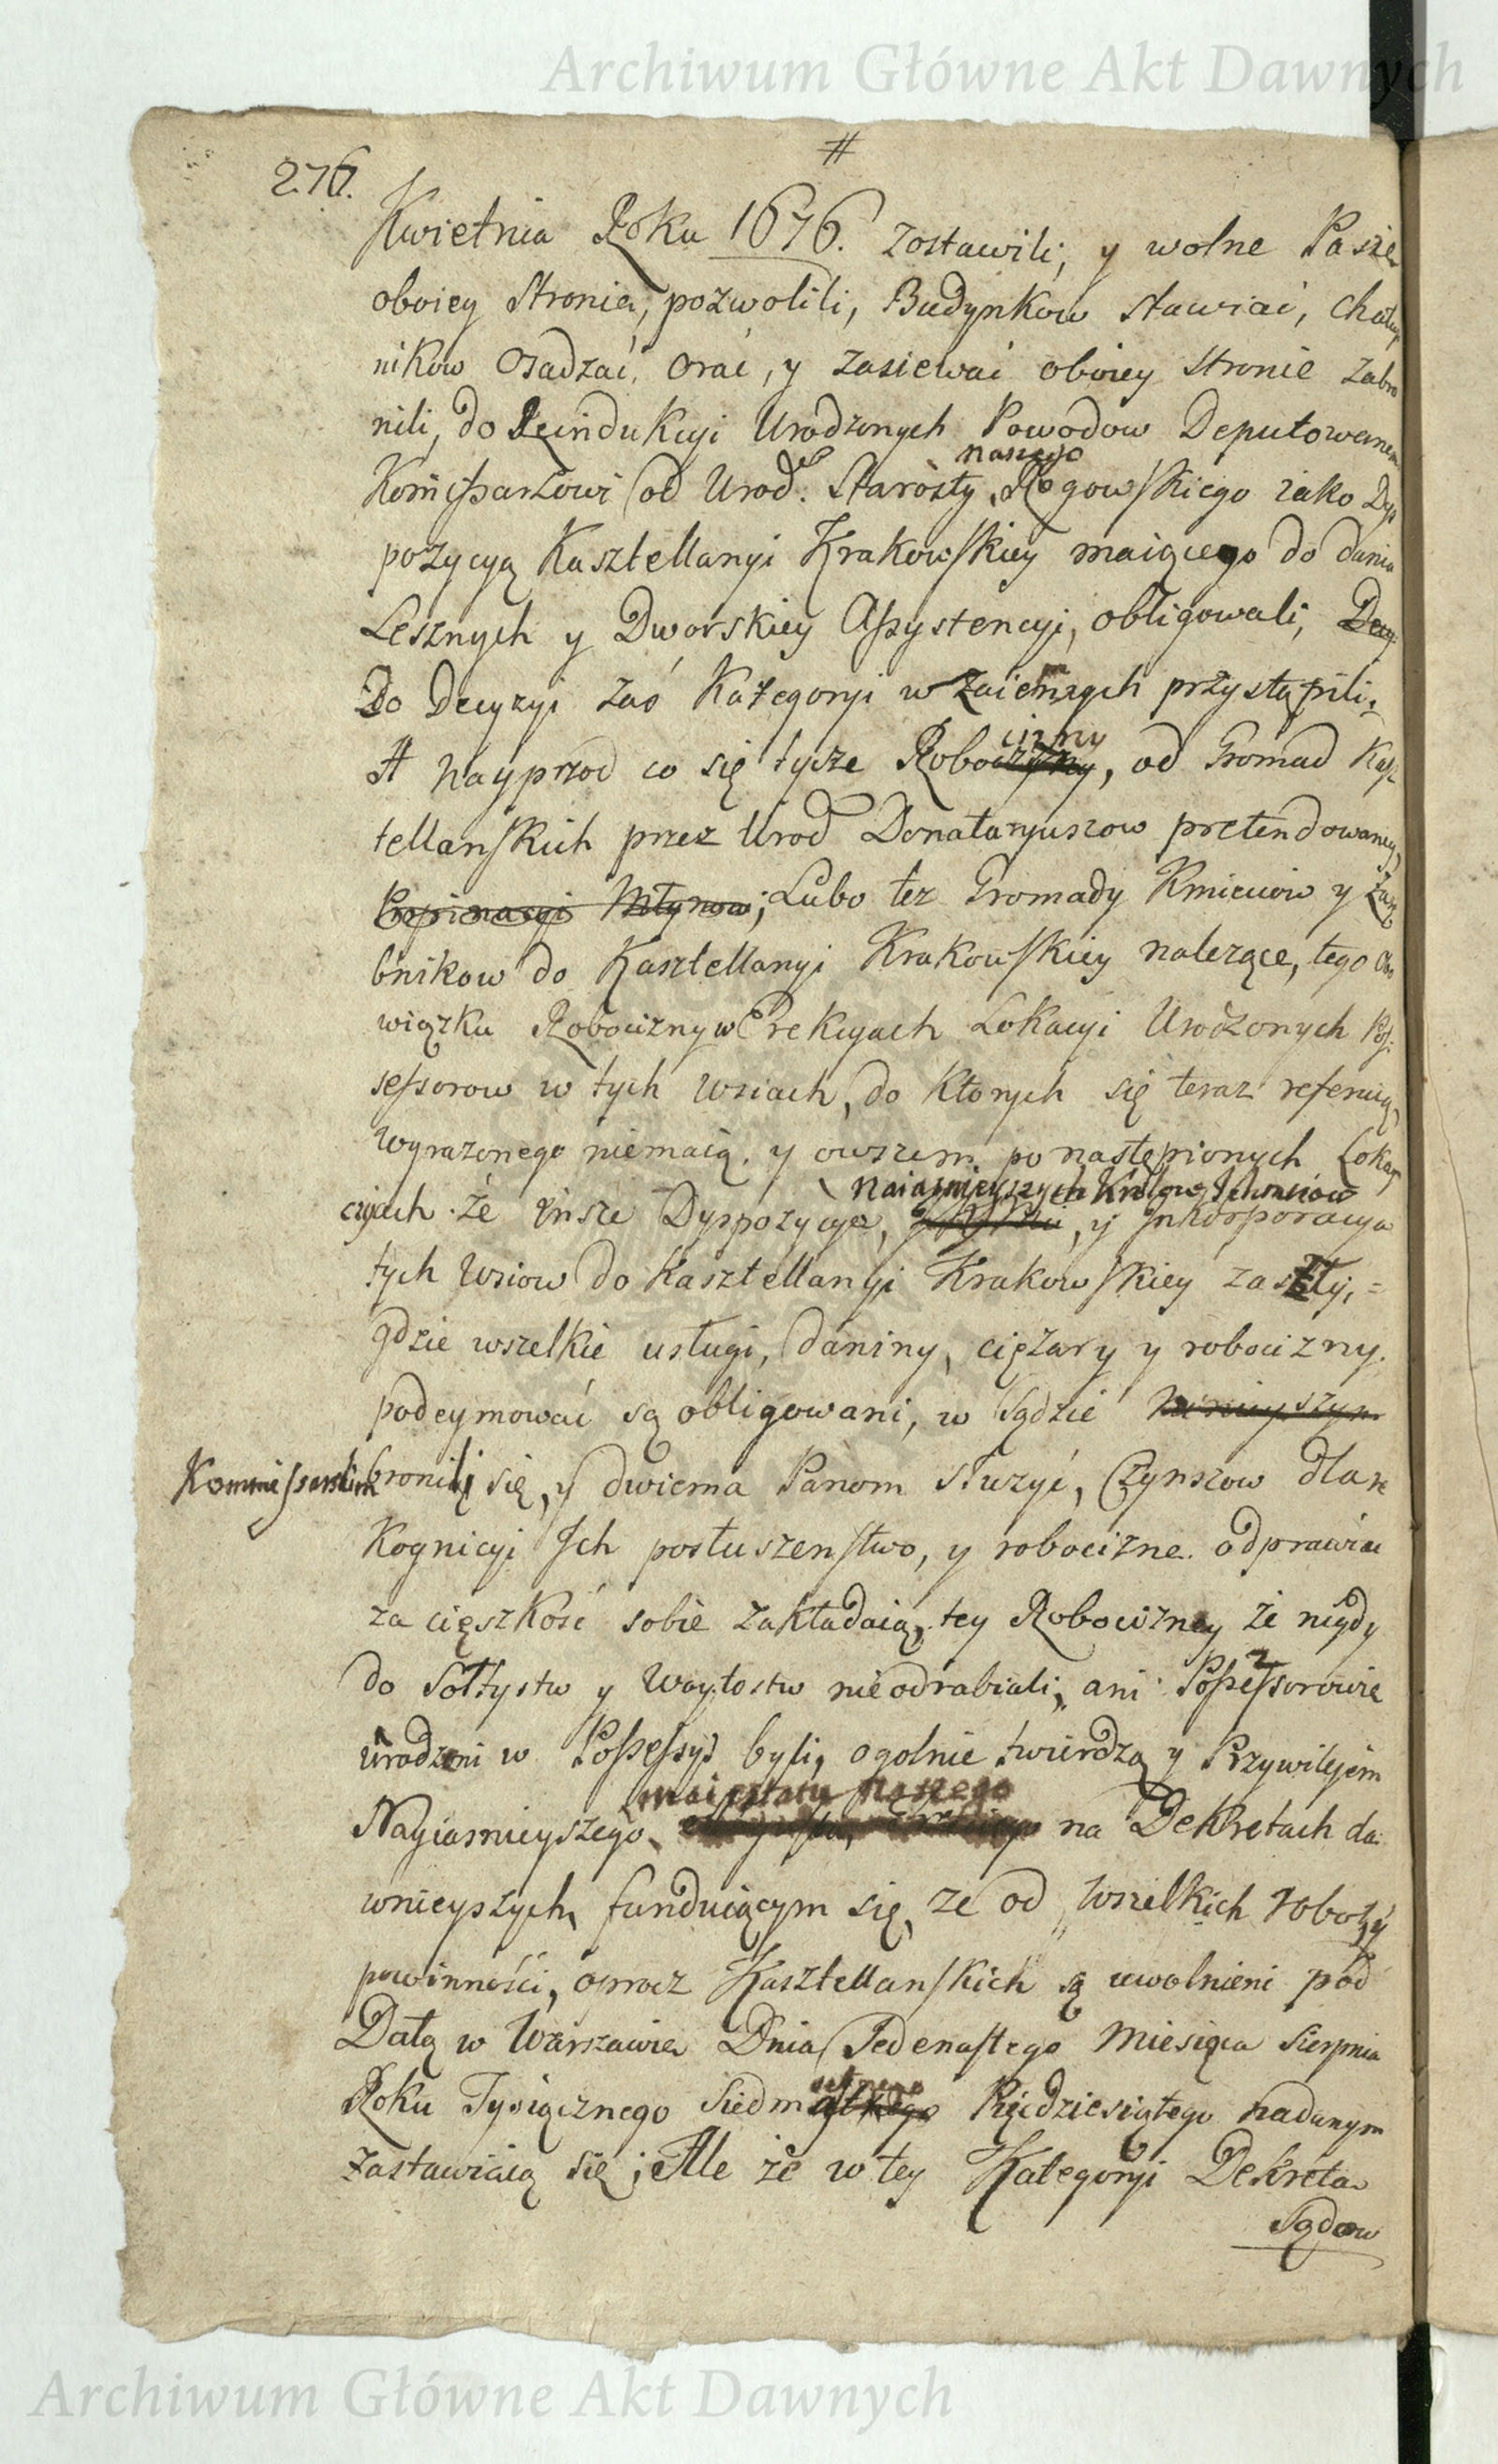 Archiwum Główne Akt Dawnych
#
276.
Kwietnia Roku 1676. zostawili, y wolne Pasze
oboiey Stronie, pozwolili, Budynkow stawiać, Chałup
nikow osadzać, orać, y zasiewać oboiey stronie zabro
nili, do Reindukcyi Urodzonych Powodow Deputowanem
naszego
Kommissarzowi od Urod. Starosty Rogowskiego iako Dys
pozycyą Kasztellanyi Krakowskiey maiącego do dania
Lesznych y Dworskiey Assystencyi, obligowali, Decy
Do Decyzyi zaś Kategoryi wzaiemnych przystąpili.
cizny
A nayprzod co się tycze Roboczyzny, od Gromad Kasz
tellanskich przez Urod Donataryuszow pretendowaney,
Propinacyi Młynow; Lubo tez Gromady Kmieciow y Zagro
bnikow do Kasztellanyi Krakowskiey nalezące, tego Obo
wiązku Robocizny w Erekcyach Lokacyi Urodzonych Pos
sessorow w tych Wsiach, do ktorych się teraz referuią,
Wyrazonego niemaią, y owszem po nastąpionych Loka
Naiasnieyszych Krolow Ichmciow
cyiach że insze Dyspozycye, y Inkorporacya
tych Wsiow do Kasztellanyi Krakowskiey zaszły,
gdzie wszelkie usługi, daniny, ciężary y robocizny
podeymować są obligowani, w Sądzie ninieyszym
Kommissarskim bronili się, y dwiema Panom służyć, Czynszow dla re
kognicyi Ich posłuszenstwo, y robocizne odprawiać
za cięszkość sobie zakładaią, tey Robocizney że nigdy
do Sołtystw y Woytostw nieodrabiali, ani Possessorowie
urodzeni w Possessyi byli, ogolnie twierdzą y Przywilejem
maiestatu Naszego
Nayiasnieyszego na Dekretach da
wnieyszych funduiącym się, ze od wszelkich robot y
powinności, oprocz Kasztellanskich są uwolnieni pod
Datą w Warszawie Dnia Jedenastego Miesiąca Sierpnia
setnego
Roku Tysiącznego Siedm Piędziesiątego nadanym
zastawiaią się; Ale że w tey Kategoryi Dekreta
Sądow
Archiwum Główne Akt Dawnych